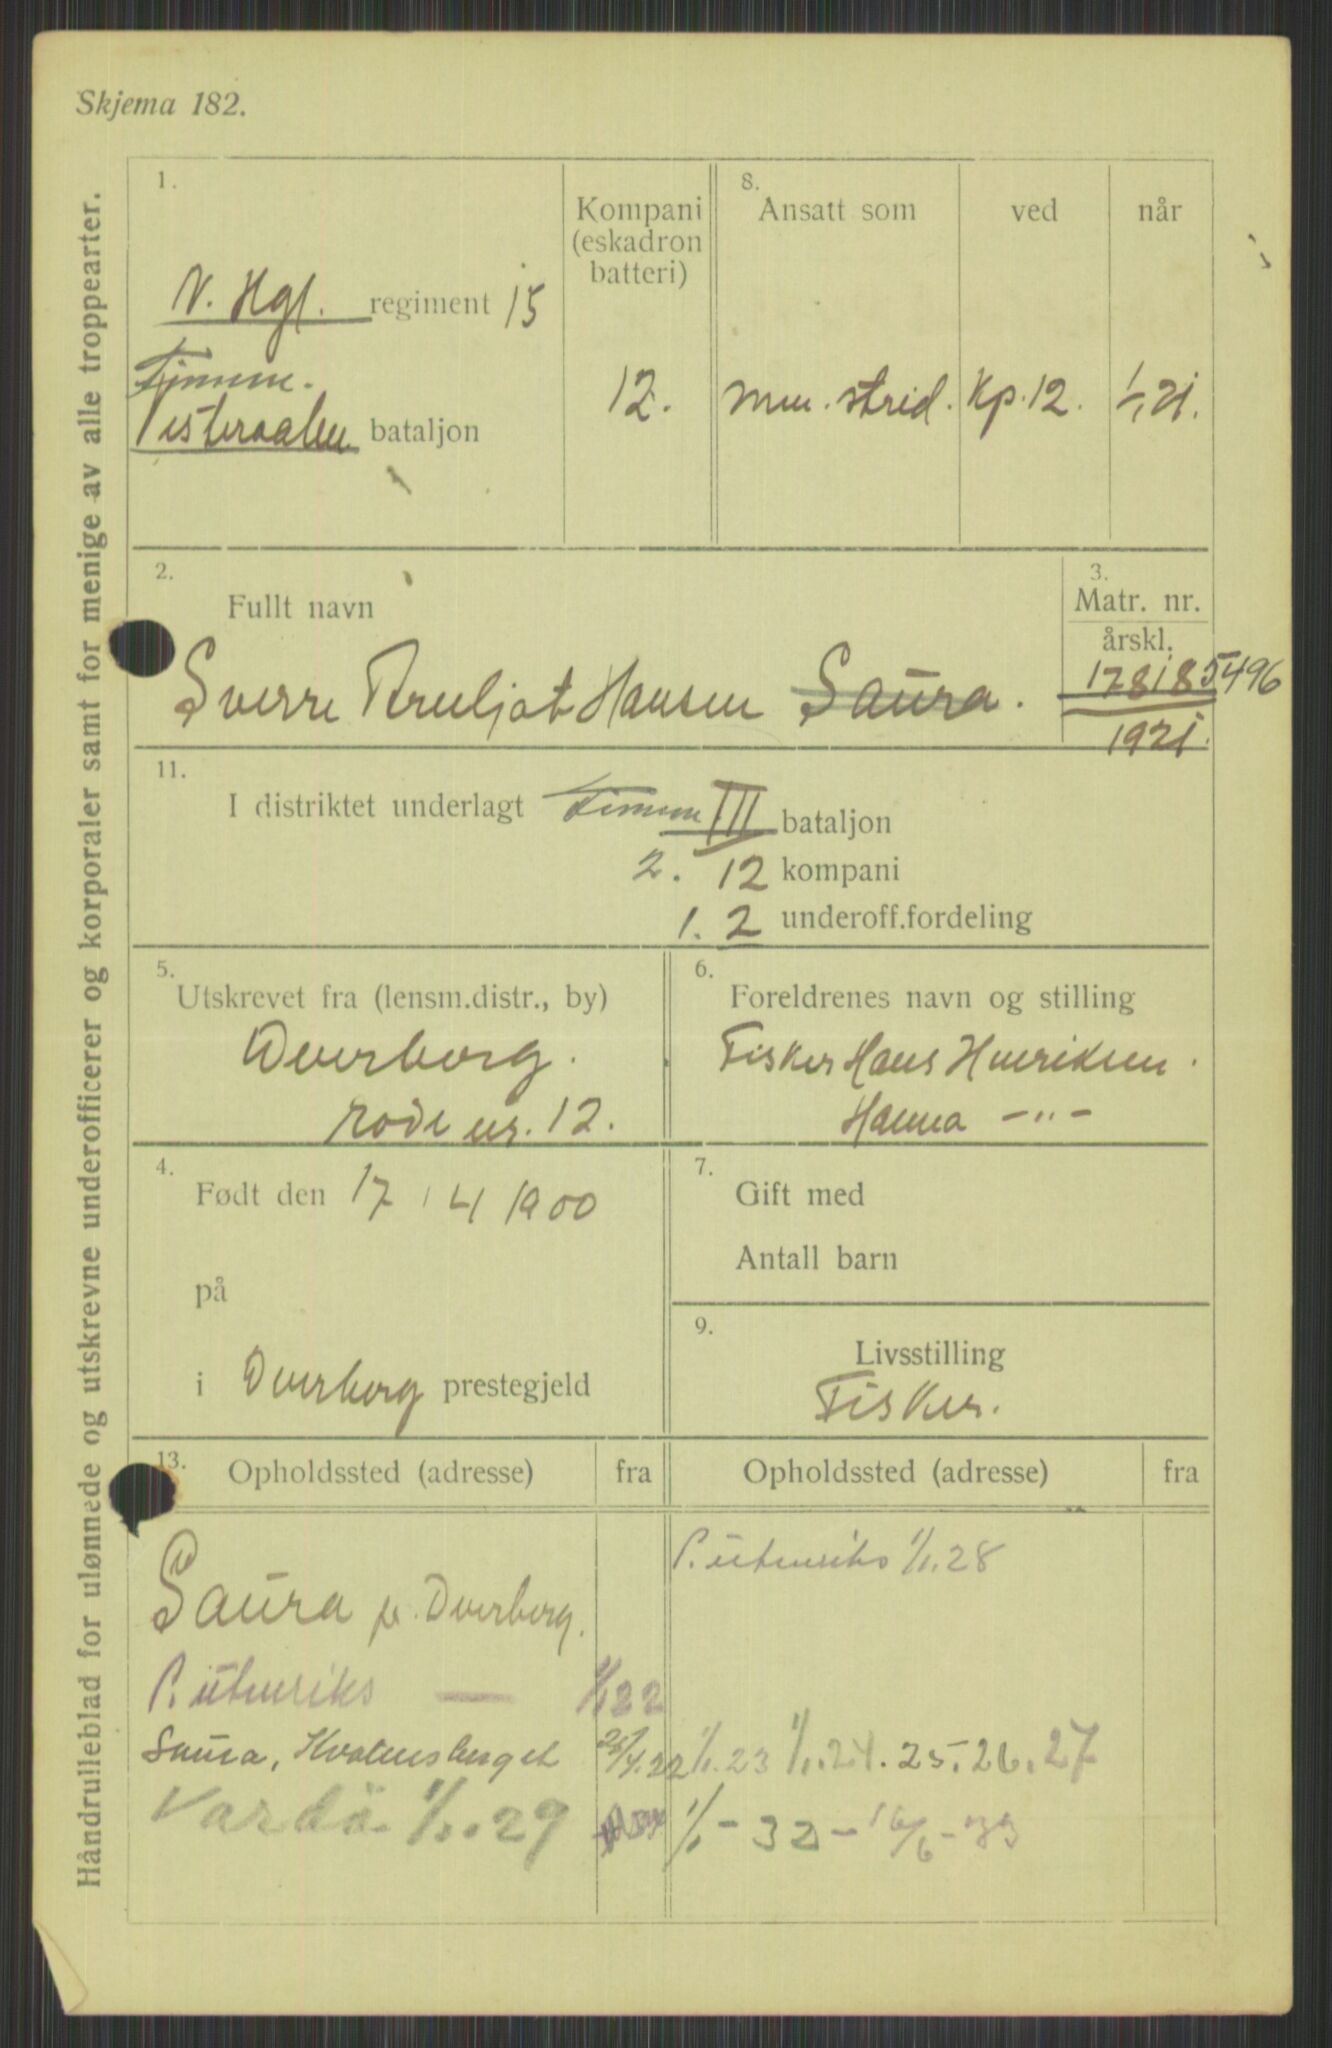 Skjema 182.
Håndrulleblad for ulønnede og utskrevne underofficerer og korporaler samt for menige av alle troppearter.
1.
N. Hgl. regiment 15
Vesteraalen bataljon
Kompani
(eskadron
batteri)
12.
8.
Ansatt som
ved
når
strid. Kp. 12. 1/1 21.
2.
Fullt navn
Sverre Hansen Saura.
3.
Matr. nr.
årskl.
1921.
11.
I distriktet underlagt III bataljon
2. 12 kompani
1. 2 underoff.fordeling
5.
Utskrevet fra (lensm.distr., by)
Dverberg.
rode nr. 12.
6.
Foreldrenes navn og stilling
Fisker Hans Henriksen.
Hanna -"-
4.
Født den 17 / 4 1900
på
i Dverberg prestegjeld
7.
Gift med
Antall barn
9.
Livsstilling
Fisker.
13.
Opholdssted (adresse)
fra
Opholdssted (adresse)
fra
P. utenriks 1/1. 28
Saura pr. Dverberg.
P. utenriks — 1/1 22
Saura, 1/1. 23 1/1. 24. 25. 26. 27
Vardø 1/1. 29